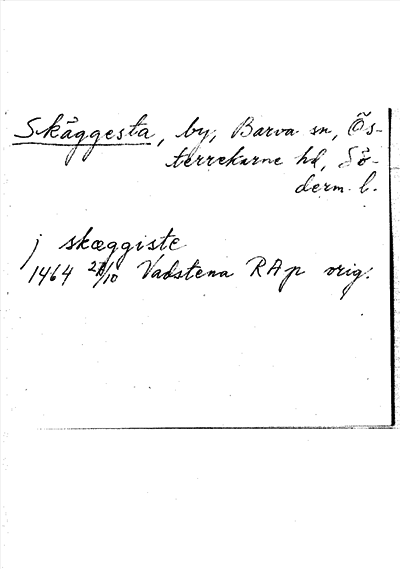 Skäggesta, by, Barva sn, Ös-
terrekarne hd, Sö-
derm. l.
j skæggiste
1464 /10 Vadstena RAp orig.